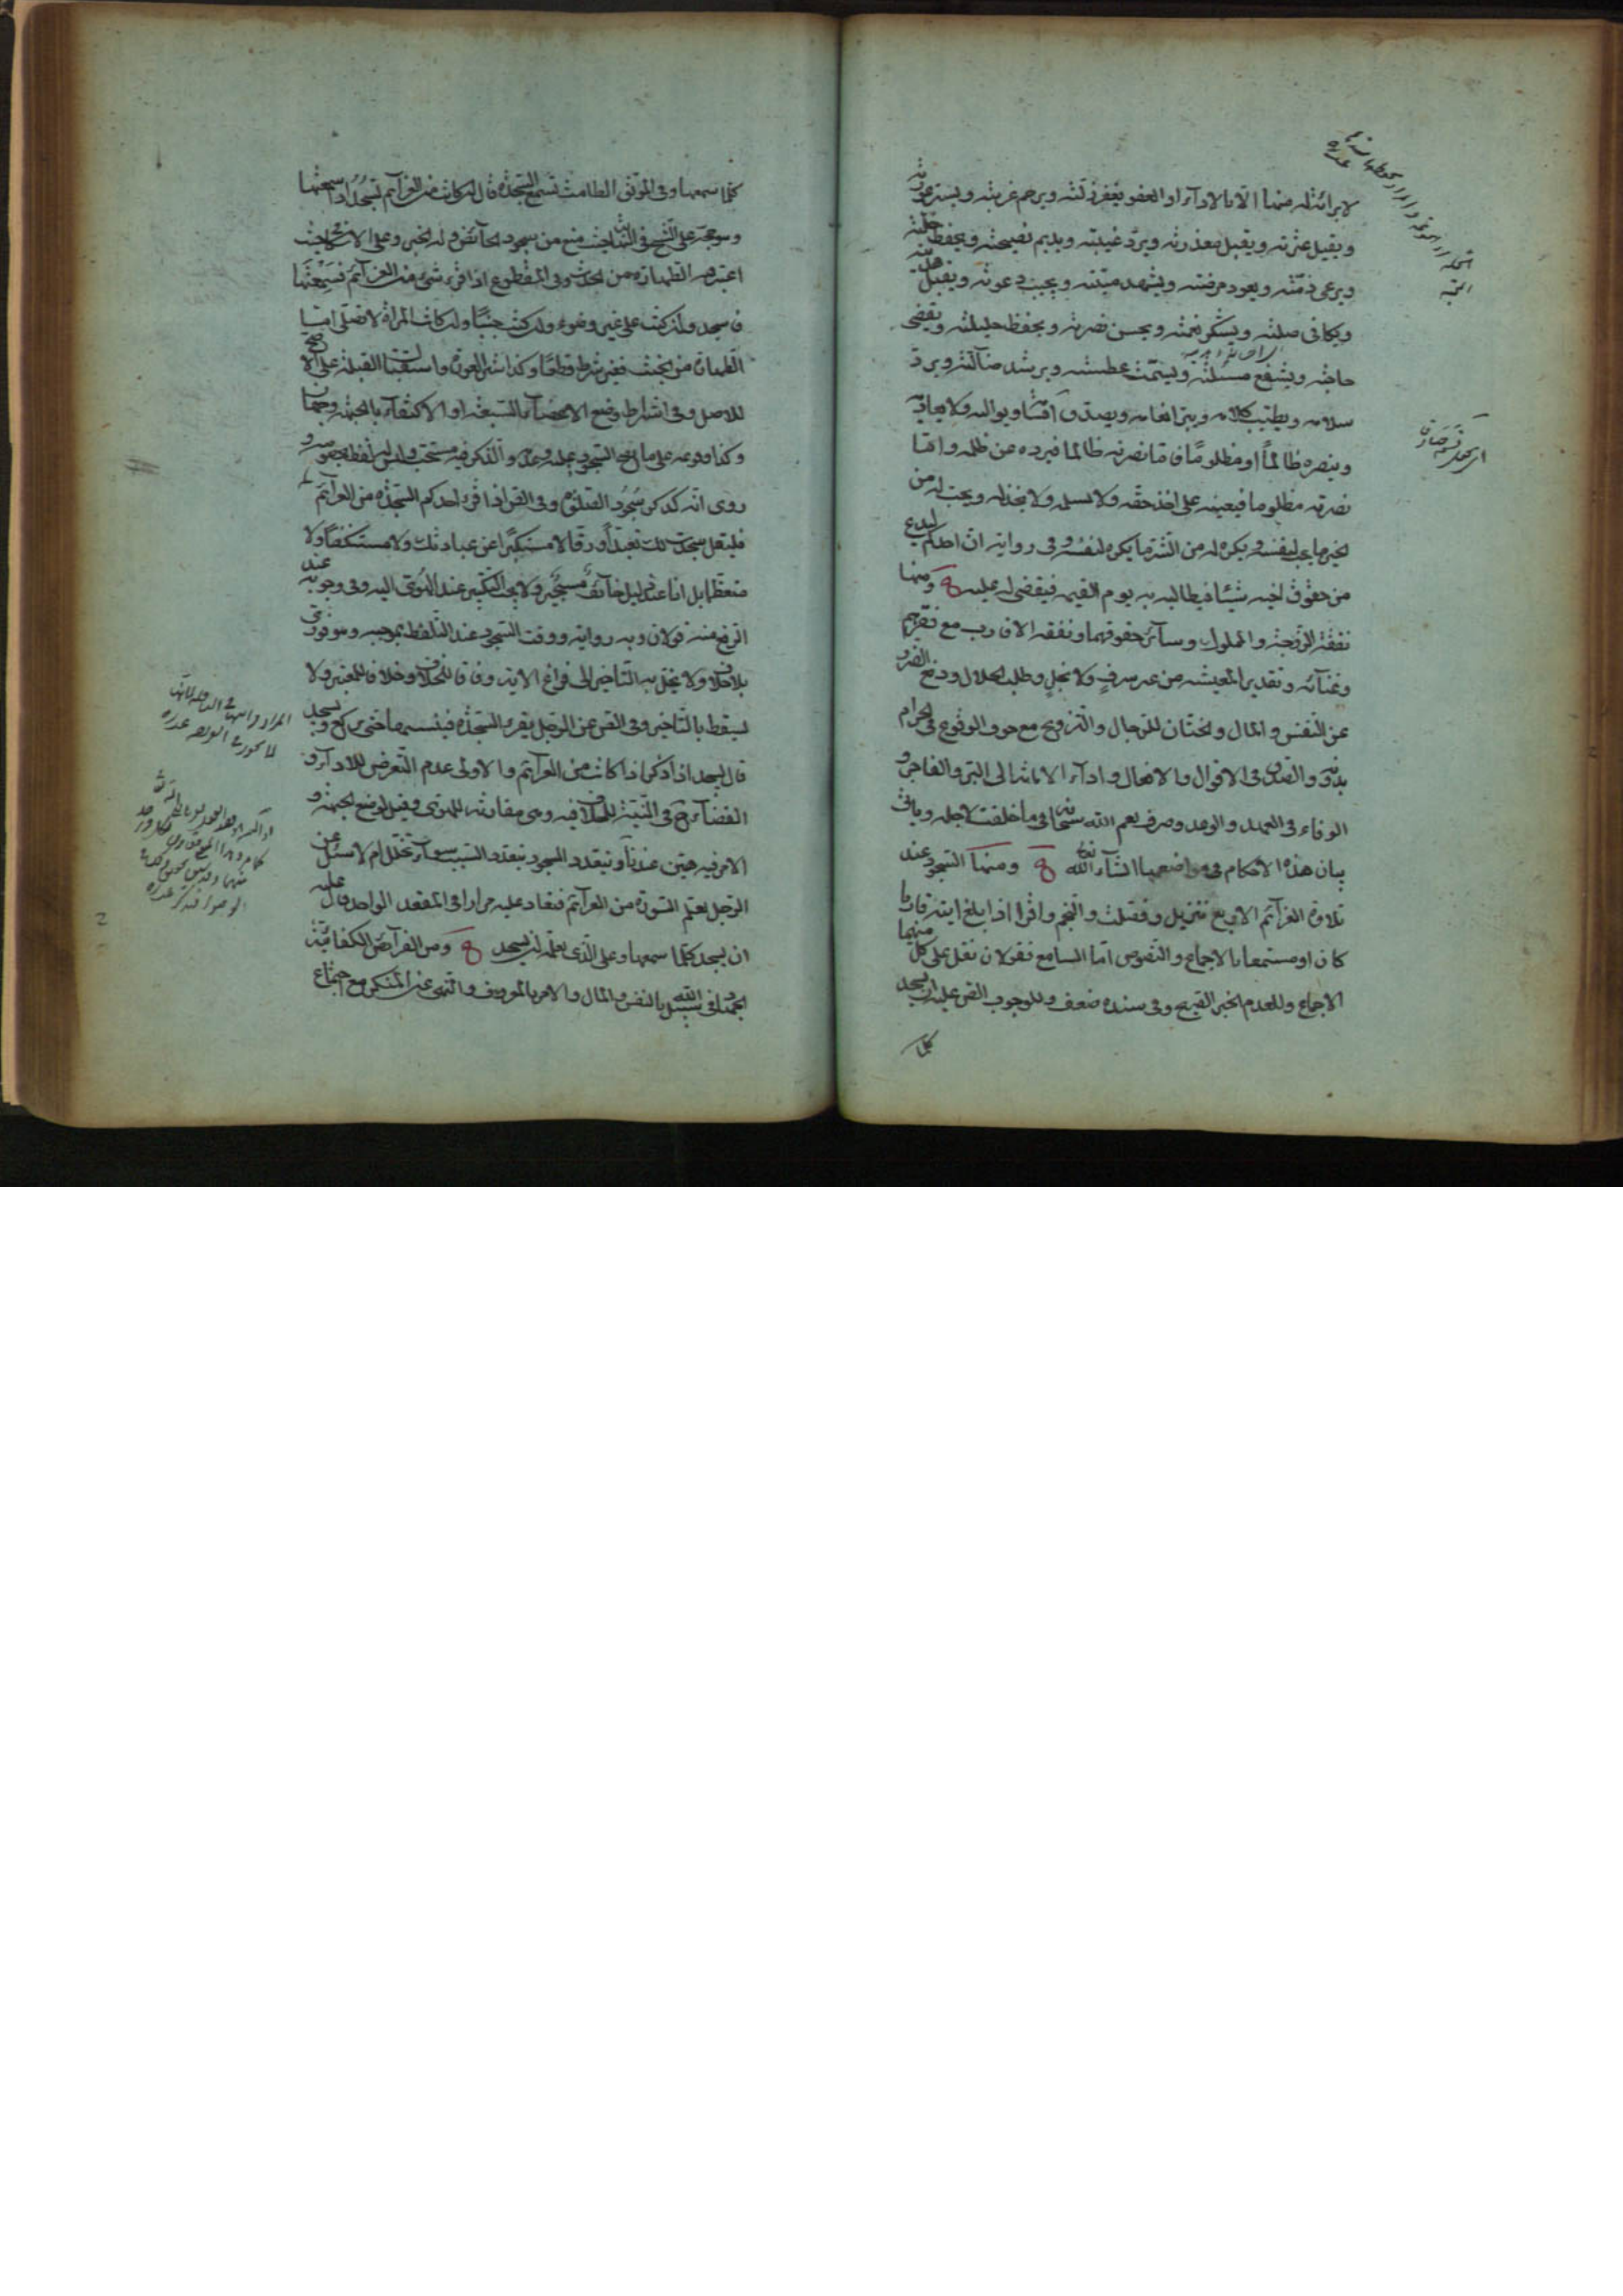 لا براءة له منها الا بالاداء او العفو يغفر زلته ويرحم غربته ويستر عورته
ويقيل عثرته ويقبل معذرته ويرد غيبته ويديم نصيحته ويحفظ خلته
ويرعى ذمته ويعود مرضته ويشهد ميتته ويجيب دعوته ويقبل هديته
ويكافى صلته ويشكر نعمته ويحسن نصرته ويحفظ حليلته ويقضى
حاجته ويشفع مسئلته ويسمت عطسته ويرشد ضالته ويرد
سلامه ويطيب كلامه ويبر انعامه ويصدق اقسامه ويواليه ولا يعاديه
وينصره ظالماً او مظلوماً فاما نصرته ظالما فيرده عن ظلمه واما
نصرته مظلوما فيعينه على اخذ حقه ولا يسلمه ولا يخذله ويحب له من
الخير ما يحب لنفسه ويكره له من الشر ما يكره لنفسه وفى رواية ان احدكم ليدع
من حقوق اخيه شيئا فيطالبه به يوم القيمة فيقضى له عليه ومنها
نفقة الزوجة والمملوك وسائر حقوقهما ونفقة الاقارب مع فقرهم
وغنائه وتقدير المعيشة من غير سرف ولا بخل وطلب الحلال ودفع الضرر
عن النفس والمال والختان للرجال والتزويج مع خوف الوقوع فى الحرام
بدونه والصدق فى الاقوال والافعال واداء الامانة الى البر والفاجر و
الوفاء فى العهد والوعد وصرف نعم الله سبحانه فى ما خلقت لاجله وياتى
بيان هذه الاحكام فى مواضعها انشاء الله تعالى ومنها السجود عند
تلاوة العزائم الاربع تنزيل وفصلت والنجم واقرا اذا بلغ ايته قاريا
كان او مستمعا بالاجماع والنصوص اما السامع فقولان نقل على كل منهما
الاجماع وللعدم الخبر الصحيح وفى سنده ضعف وللوجوب القوى عليه ان يسجد
كلما
كلما سمعها وفى الموثق الطامث تسمع السجدة قال ان كانت من العزائم تسجد اذا سمعتها
وهو حجة على الشيخ فى النهاية حيث منع من سجود الحائض وله الخبر وعلى الاسكافى حيث
اعتبر فيه الطهارة من الحدث وفى المقطوع اذا قرء شىء من العزائم فسمعتها
فاسجد وان كنت على غير وضوء وان كنت جنبا وان كانت المراة لا تصلى اما
الطهارة من الخبث فغير شرط قطعا وكذا ستر العورة واستقبال القبلة على الاصح
للاصل وفى اشتراط وضع الاعضاء السبعة او الاكتفاء بالجبهة وجهان
وكذا وضعه على ما يصح السجود عليه وعدمه والذكر فيه مستحب وليس له لفظ مخصوص و
روى انه كذكر سجود الصلوة وفى القوى اذا قرء احدكم السجدة من العزائم
فليقل سجدت لك تعبدا ورقا لا مستكبرا عن عبادتك ولا مستنكفا ولا
متعظما بل انا عبد ذليل خائف مستجير ولا يجب التكبير عند الهوى اليه وفى وجوبه عند
الرفع منه قولان وبه رواية ووقت السجود عند التلفظ بموجبه وهو فورى
بلا خلاف ولا يخل به التاخير الى فراغ الاية وفاقا للخلاف وخلافا للمعتبر ولا
يسقط بالتاخير وفى القوى عن الرجل يقرء السجدة فينسيها حتى يركع ويسجد
قال يسجد اذا ذكر اذا كانت من العزائم والاولى عدم التعرض للاداء و
القضاء فى النية للخلاف فيه وهى مقارنة للهوى وقيل لوضع الجبهة و
الامر فيه هين عندنا ويتعدد السجود بتعدد السبب سواء تخلل ام لا سئل عن
الرجل يعلم السورة من العزائم فتعاد عليه مرارا فى المقعد الواحد قال عليه
ان يسجد كلما سمعها وعلى الذى يعلمه ان يسجد ومن الفرائض الكفائية
الجهاد فى سبيل الله بالنفس والمال والامر بالمعروف والنهى عن المنكر مع اجتماع